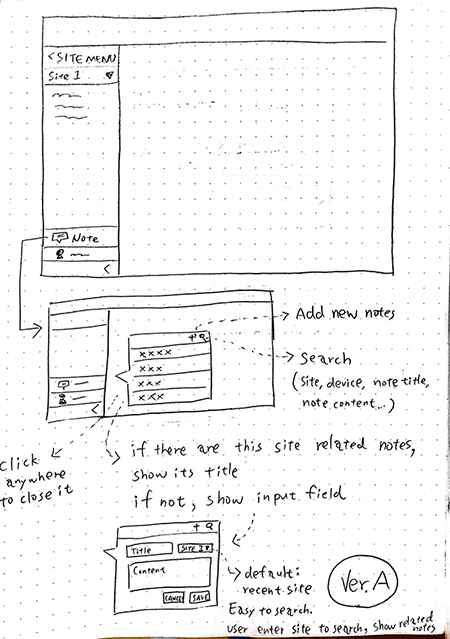 < SITE MENU
Site 1
Note
<
+
Add new notes
xxxx
xxx
xxx
xxx
Search
(Site, device, note title,
note content...)
<
Click
anywhere
to close it
if there are this site related notes,
show its title
if not, show input field
+
Title
SITE 1
Content
CANCEL
SAVE
default:
recent site
Easy to search.
User enter site to search, show related
notes
Ver. A